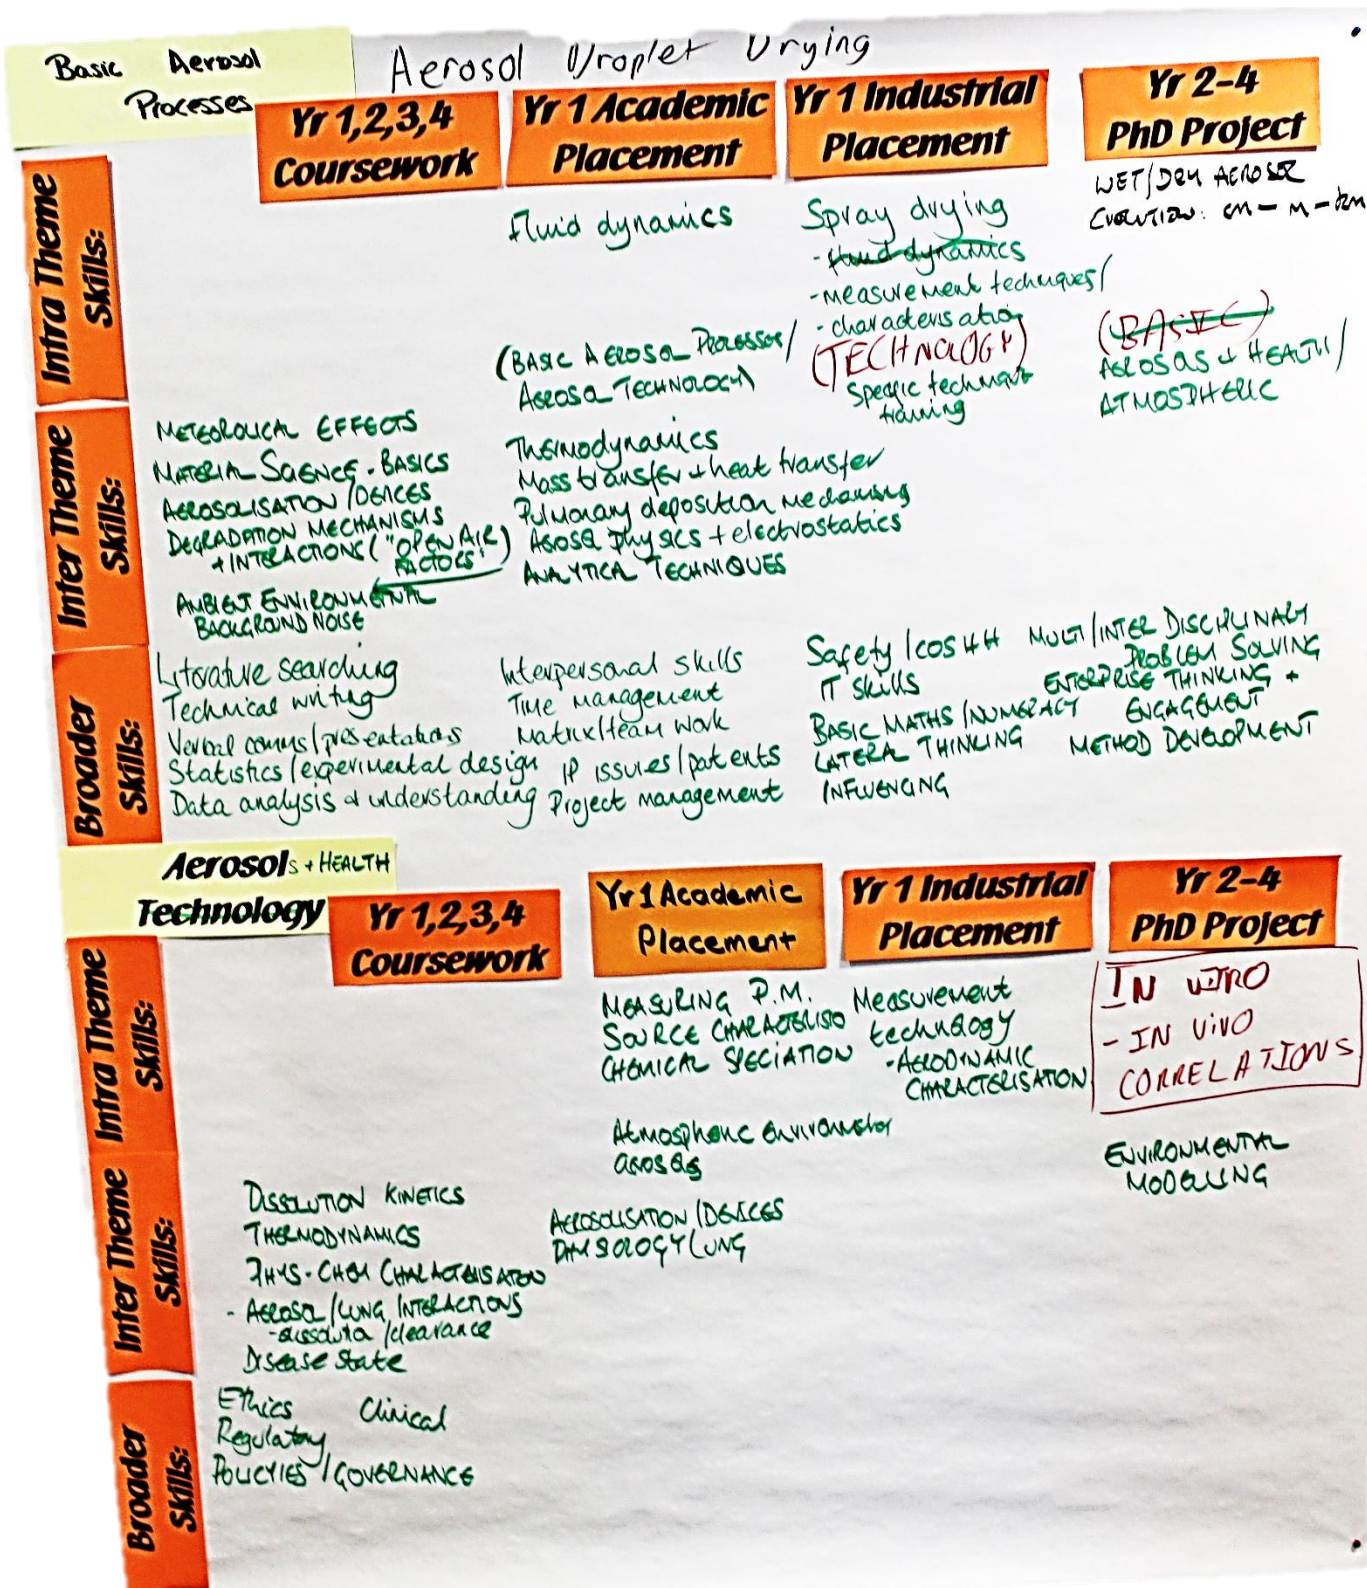 Basic Aerosol
Processes
Aerosol Droplet Drying
Yr 1,2,3,4
Coursework
Yr 1 Academic
Placement
Yr 1 Industrial
Placement
Yr 2-4
PhD Project
Intra Theme
Skills:
Fluid dynamics
(BASIC AEROSOL PROCESSES/
AEROSOL TECHNOLOGY)
Spray drying
- fluid dynamics
- measurement techniques/
- characterisation
(TECHNOLOGY)
Specific technique
training
WET/DRY AEROSOL
EVOLUTION: cm - m - km
(BASIC)
AEROSOLS + HEALTH/
ATMOSPHERIC
Inter Theme
Skills:
METEOROLICAL EFFECTS
MATERIAL SCIENCE - BASICS
AEROSOLISATION/DEVICES
DEGRADATION MECHANISMS
+ INTERACTIONS ("OPEN AIR
FACTORS")
AMBIENT ENVIRONMENTAL
BACKGROUND NOISE
Thermodynamics
Mass transfer + heat transfer
Pulmonary deposition mechanisms
Aerosol physics + electrostatics
ANALYTICAL TECHNIQUES
Broader
Skills:
Literature searching
Technical writing
Verbal comms/presentations
Statistics/experimental design
Data analysis & understanding
Interpersonal skills
Time management
Matrix/team work
IP issues/patents
Project management
Safety/COSHH
IT skills
BASIC MATHS/NUMERACY
LATERAL THINKING
INFLUENCING
MULTI/INTER DISCIPLINARY
PROBLEM SOLVING
ENTERPRISE THINKING +
ENGAGEMENT
METHOD DEVELOPMENT
Aerosols + HEALTH
Technology
Yr 1,2,3,4
Coursework
Yr 1 Academic
Placement
Yr 1 Industrial
Placement
Yr 2-4
PhD Project
Intra Theme
Skills:
MEASURING P.M.
SOURCE CHARACTERISTO
CHEMICAL SPECIATION
Atmospheric environmental
aerosols
Measurement
technology
- AERODYNAMIC
CHARACTERISATION
IN VITRO
- IN VIVO
CORRELATIONS
ENVIRONMENTAL
MODELLING
Inter Theme
Skills:
DISSOLUTION KINETICS
THERMODYNAMICS
PHYS-CHEM CHARACTERISATION
- AEROSOL/LUNG INTERACTIONS
- /clearance
Disease State
AEROSOLISATION/DEVICES
LUNG
Broader
Skills:
Ethics Clinical
Regulatory
POLICYIES/GOVERNANCE